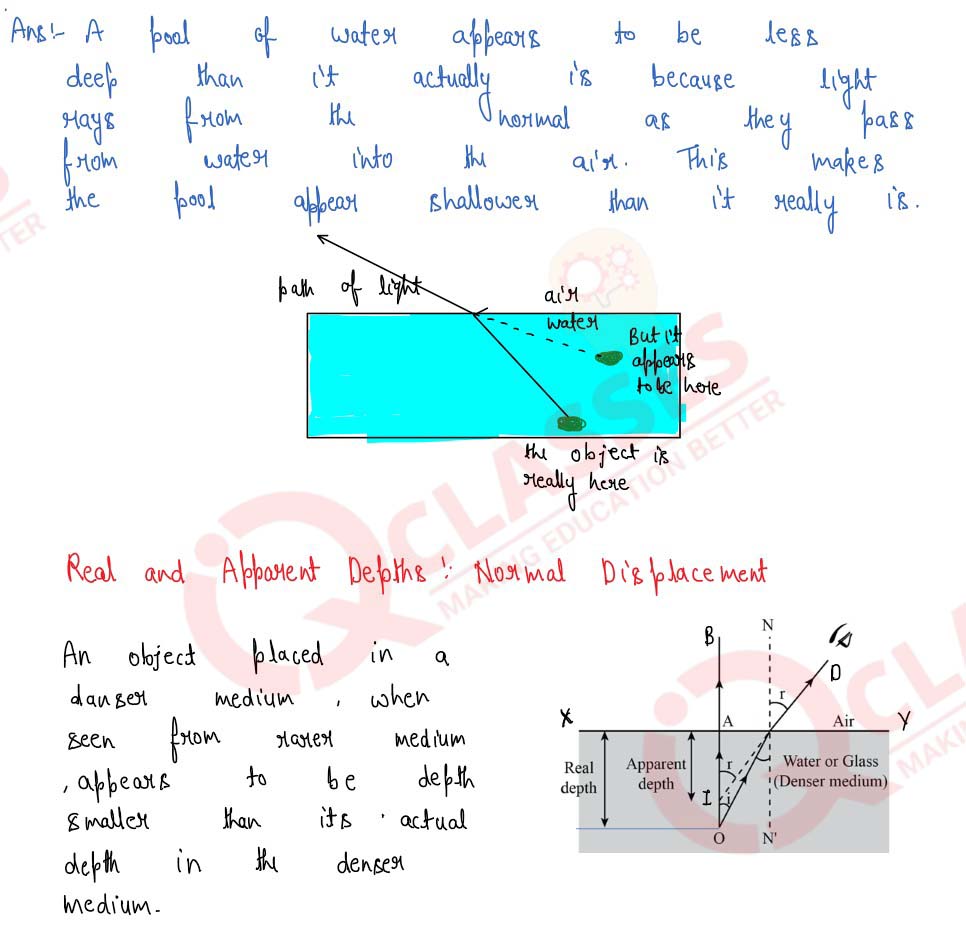 Ans:- A pool of water appears to be less
deep than it actually is because light
rays from the normal as they pass
from water into the air. This makes
the pool appear shallower than it really is.
path of light
air
water
But it
appears
to be here
the object is
really here
Real and Apparent Depths : Normal Displacement
An object placed in a
danser medium , when
seen from rarer medium
, appears to be depth
smaller than its actual
depth in the denser
medium.
B
N
D
r
X
A
Air
Y
Real
depth
Apparent
depth
r
Water or Glass
(Denser medium)
I
i
O
N'
CLASSES
MAKING EDUCATION BETTER
CLASSES
MAKING EDUCATION BETTER
TER
MAKI